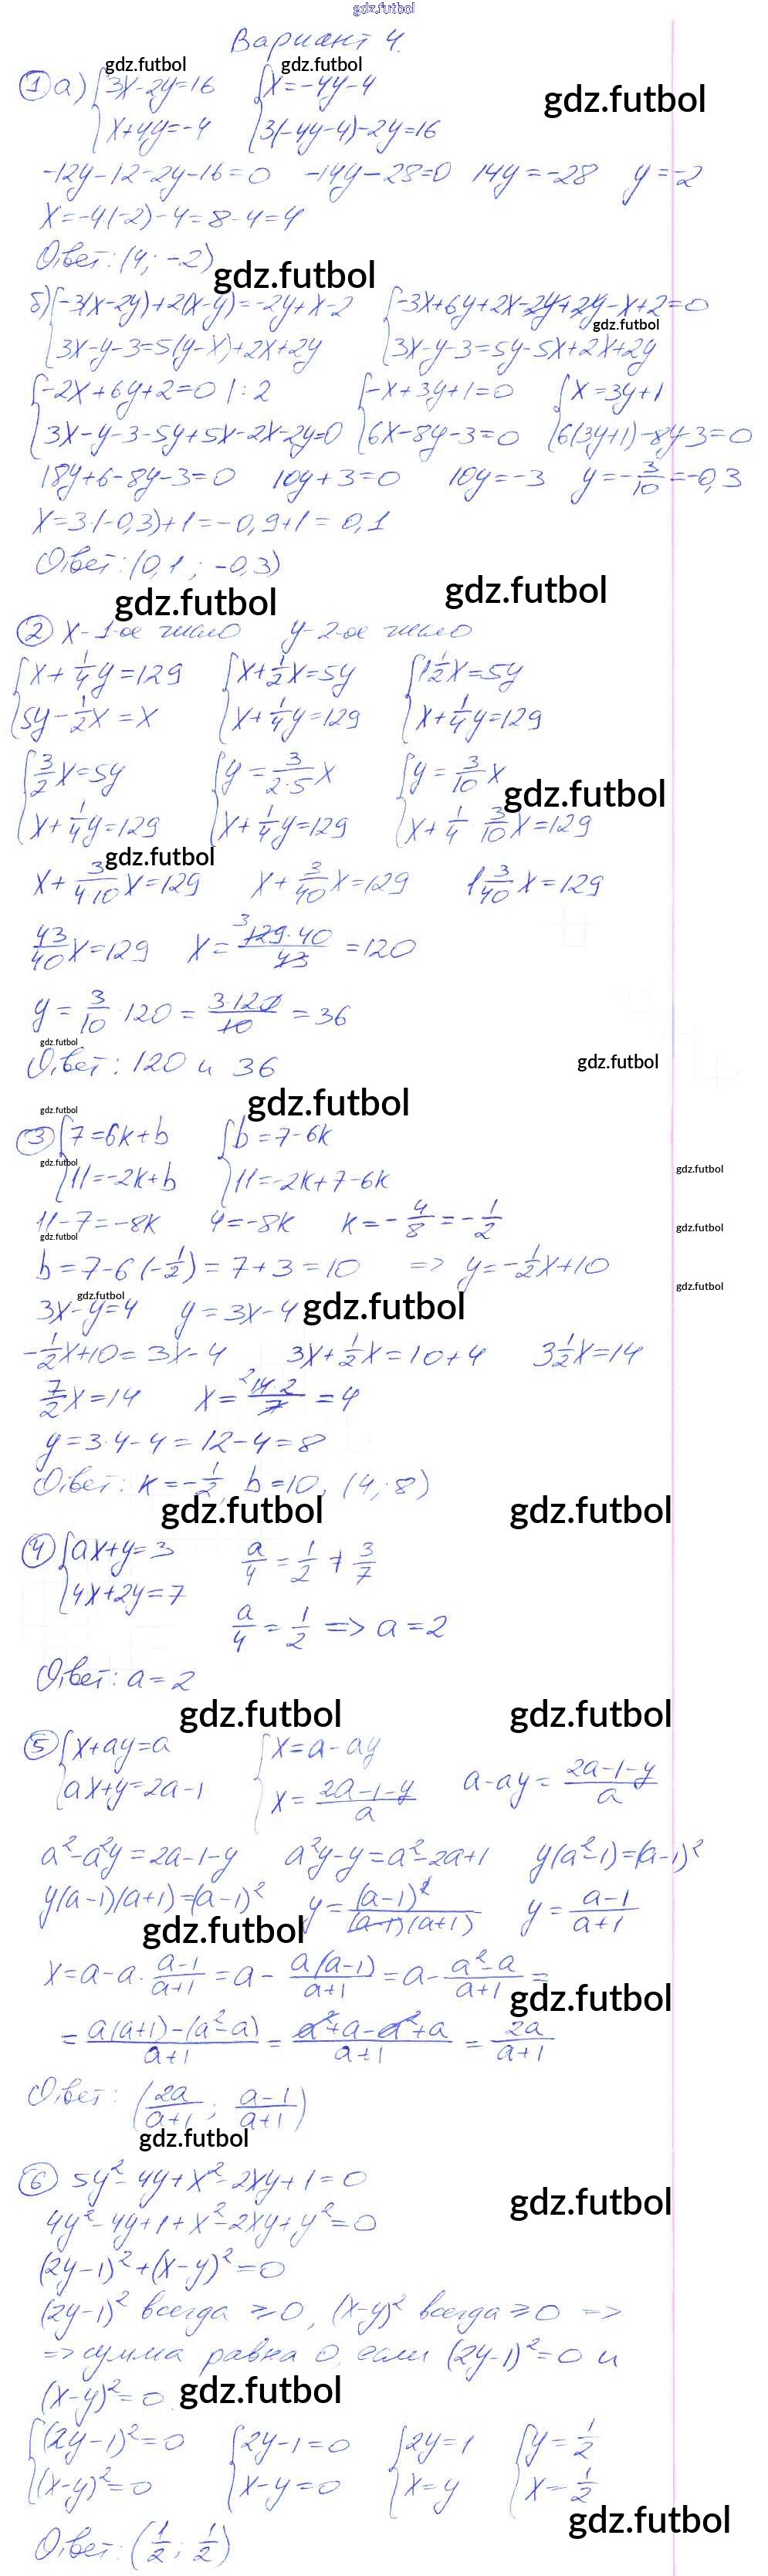 gdz.futbol
Вариант 4.
gdz.futbol gdz.futbol
① а) {3x-2y=16 {x=-4y-4
gdz.futbol
{x+4y=-4 {3(-4y-4)-2y=16
-12y-12-2y-16=0 -14y-28=0 14y=-28 y=-2
x=-4(-2)-4=8-4=4
Ответ: (4; -2)
gdz.futbol
б) {-3(x-2y)+2(x-y)=-2y+x-2 {-3x+6y+2x-2y+2y-x+2=0
gdz.futbol
{3x-y-3=5(y-x)+2x+2y {3x-y-3=5y-5x+2x+2y
{-2x+6y+2=0 |:2 {-x+3y+1=0 {x=3y+1
{3x-y-3-5y+5x-2x-2y=0 {6x-8y-3=0 {6(3y+1)-8y-3=0
18y+6-8y-3=0 10y+3=0 10y=-3 y=-3/10=-0,3
x=3·(-0,3)+1=-0,9+1=0,1
Ответ: (0,1; -0,3)
gdz.futbol gdz.futbol
② x-1-ое число y-2-ое число
{x+1/4y=129 {x+1/2x=5y {1 1/2x=5y
{5y-1/2x=x {x+1/4y=129 {x+1/4y=129
{3/2x=5y {y=3/(2·5)x {y=3/10x
gdz.futbol
{x+1/4y=129 {x+1/4y=129 {x+1/4 3/10x=129
gdz.futbol
x+3/(4·10)x=129 x+3/40x=129 1 3/40x=129
43/40x=129 x=3 129·40/43=120
y=3/10·120=3·120/10=36
gdz.futbol
Ответ: 120 и 36
gdz.futbol
gdz.futbol
gdz.futbol
③ {7=6k+b {b=7-6k
gdz.futbol gdz.futbol
{11=-2k+b {11=-2k+7-6k
11-7=-8k 4=-8k k=-4/8=-1/2
gdz.futbol gdz.futbol
b=7-6(-1/2)=7+3=10 => y=-1/2x+10
gdz.futbol gdz.futbol
3x-y=4 y=3x-4
gdz.futbol
-1/2x+10=3x-4 3x+1/2x=10+4 3 1/2x=14
7/2x=14 x=2 14·2/7=4
y=3·4-4=12-4=8
Ответ: k=-1/2, b=10, (4; 8)
gdz.futbol gdz.futbol
④ {ax+y=3 a/4=1/2≠3/7
{4x+2y=7
a/4=1/2 => a=2
Ответ: a=2
gdz.futbol gdz.futbol
⑤ {x+ay=a {x=a-ay
{ax+y=2a-1 {x=(2a-1-y)/a a-ay=(2a-1-y)/a
a²-a²y=2a-1-y a²y-y=a²-2a+1 y(a²-1)=(a-1)²
y(a-1)(a+1)=(a-1)² y=(a-1)²/((a-1)(a+1)) y=(a-1)/(a+1)
gdz.futbol
x=a-a·(a-1)/(a+1)=a-a(a-1)/(a+1)=a-(a²-a)/(a+1)=
gdz.futbol
=(a(a+1)-(a²-a))/(a+1)=(a²+a-a²+a)/(a+1)=2a/(a+1)
Ответ: (2a/(a+1); (a-1)/(a+1))
gdz.futbol
⑥ 5y²-4y+x²-2xy+1=0
gdz.futbol
4y²-4y+1+x²-2xy+y²=0
(2y-1)²+(x-y)²=0
(2y-1)² всегда ≥0, (x-y)² всегда ≥0 =>
=> сумма равна 0, если (2y-1)²=0 и
(x-y)²=0.
gdz.futbol
{(2y-1)²=0 {2y-1=0 {2y=1 {y=1/2
{(x-y)²=0 {x-y=0 {x=y {x=1/2
gdz.futbol
Ответ: (1/2; 1/2)